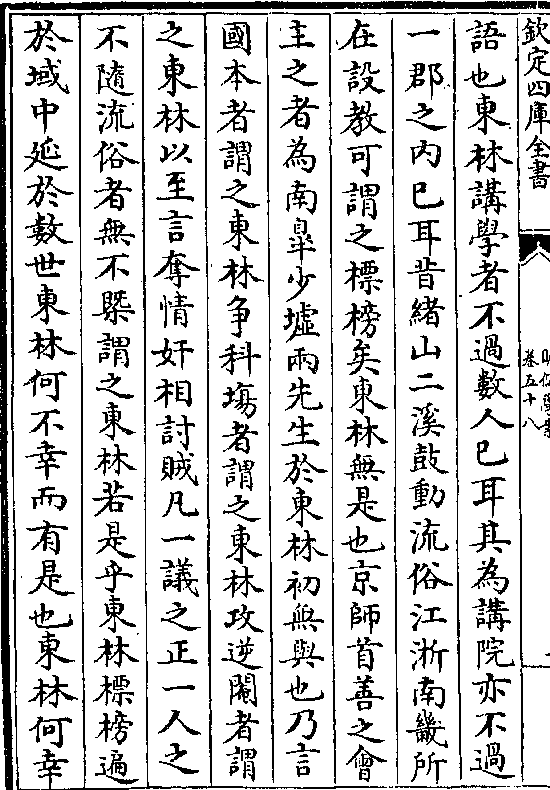 欽定四庫全書
卷五十八
語也東林講學者不過數人已耳其為講院亦不過
一郡之内已耳昔緒山二溪鼓動流俗江浙南畿所
在設教可謂之標榜矣東林無是也京師首善之會
主之者為南臯少墟兩先生於東林初無與也乃言
國本者謂之東林争科塲者謂之東林攻逆閹者謂
之東林以至言奪情奸相討賊凡一議之正一人之
不隨流俗者無不槩謂之東林若是乎東林標榜遍
於域中延於數世東林何不幸而有是也東林何幸